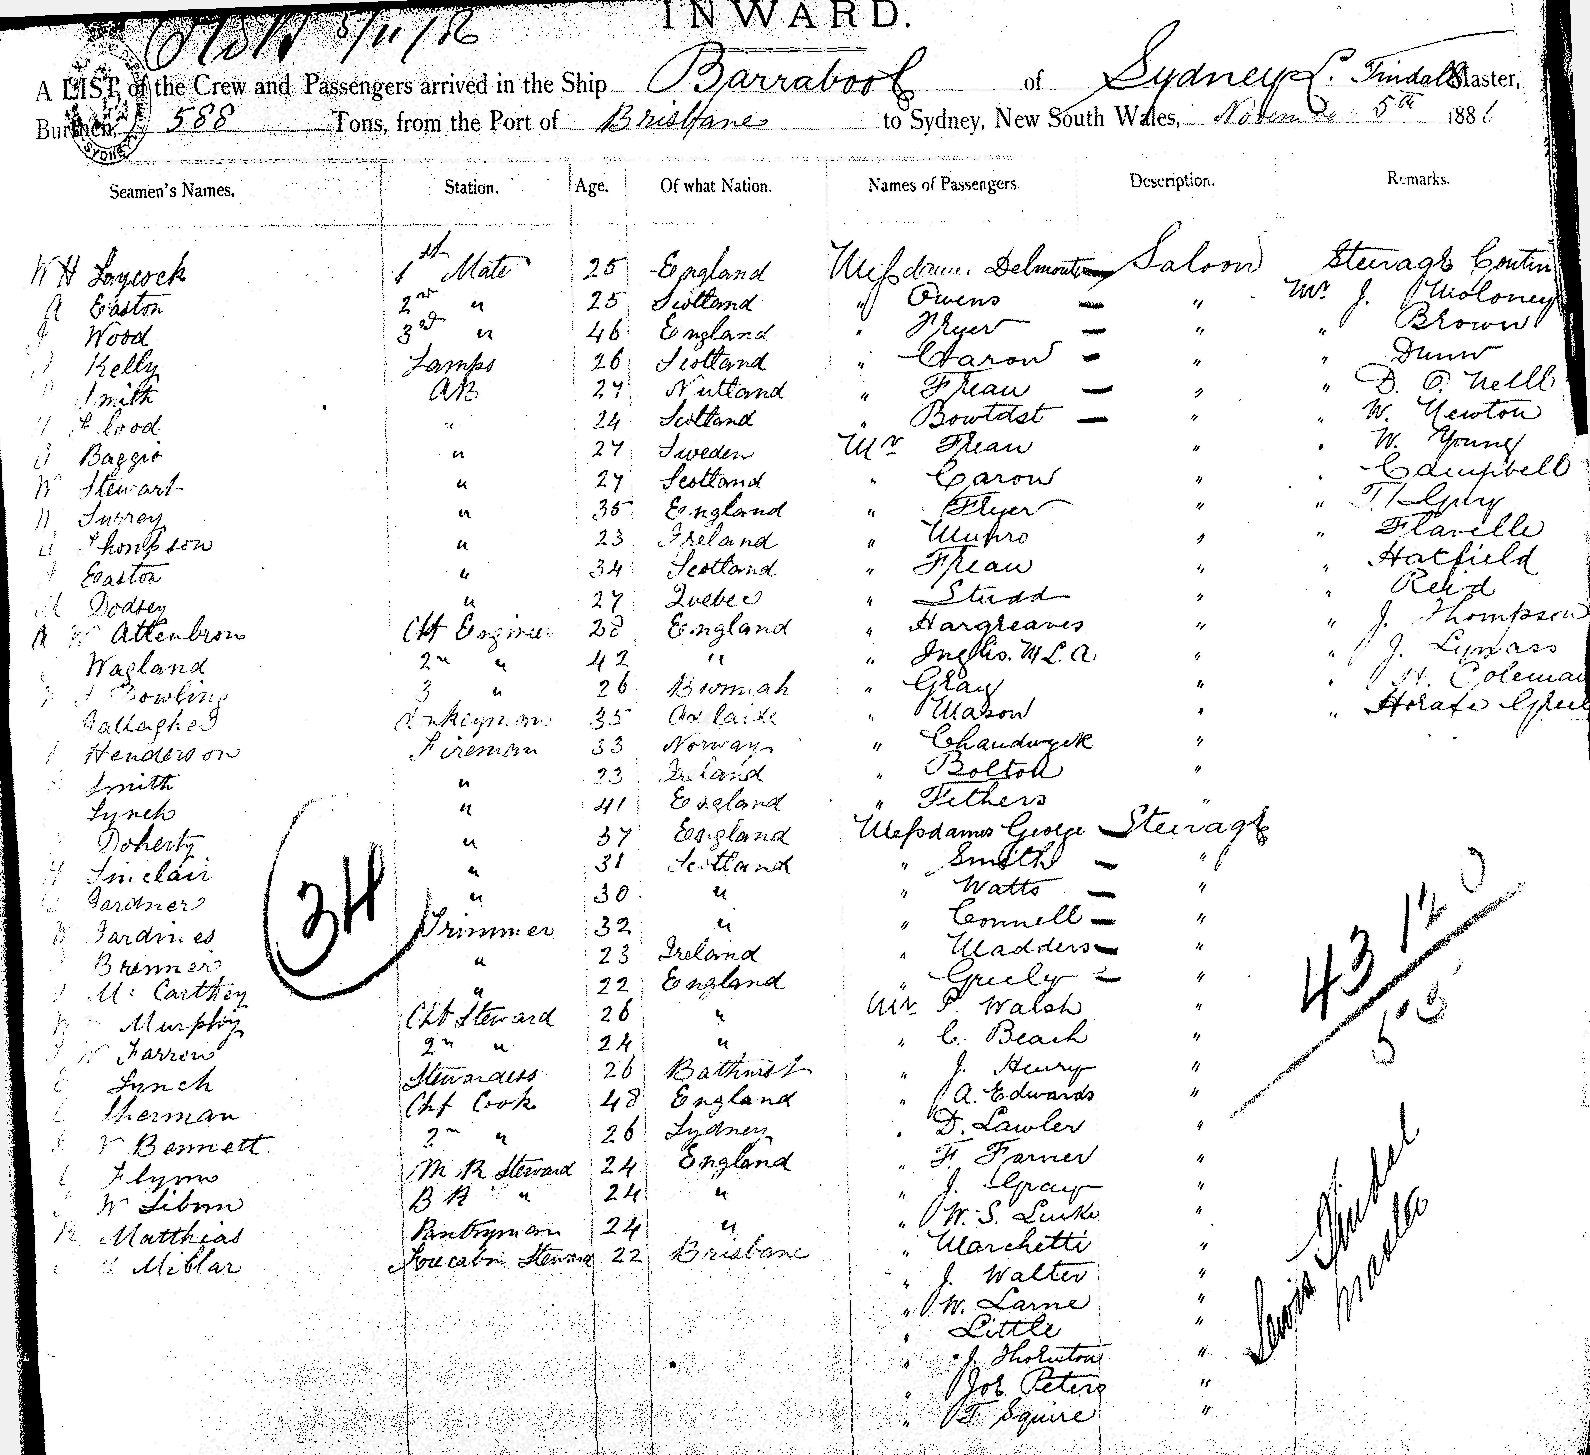 INWARD.
5/11/86
A LIST of the Crew and Passengers arrived in the Ship Barrabool of Sydney L. Tindall Master,
Burthen, 588 Tons, from the Port of Brisbane to Sydney, New South Wales, November 5th 1886
SYDNEY
Seamen's Names. Station. Age. Of what Nation. Names of Passengers. Description. Remarks.
W H Laycock 1st Mate 25 England Messdames Delmonte Saloon Steerage Contin
A Easton 2nd " 25 Scotland " Owens " Mr J. Moloney
J Wood 3rd " 46 England " Fryer " " Brown
Kelly Lamps 26 Scotland " Caron " " Dunn
Smith AB 27 " Frean " " D. O'Neill
Flood " 24 Scotland " " " W. Newton
Baggio " 27 Sweden Mr Frean " " W. Young
W Stewart " 27 Scotland " Caron " " Campbell
Surrey " 35 England " Fryer " "
Thompson " 23 Ireland " Munro " " Flavelle
Easton " 34 Scotland " Frean " " Hatfield
Dodsey " 27 Quebec " Studd " " Reid
Attenbrow Chf Engineer 28 England " Hargreaves " " J. Thompson
Wagland 2nd " 42 " " Inglis. M L. A. " " J. Lynass
Bowling 3 " 26 " Gray " " H. Coleman
Gallagher 35 Adelaide " Mason " "
Henderson Fireman 33 Norway " Chaudwyck "
Smith " 23 Ireland " Bolton "
Lynch " 41 England " Fethers "
Doherty " 37 England Messdames George Steerage
Sinclair " 31 Scotland " Smith "
Gardner " 30 " " Watts "
Jardines Trimmer 32 " " Connell "
Brenner " 23 Ireland " Madders "
McCarthey " 22 England " Greely "
Murphy Chf Steward 26 " Mr P. Walsh "
W Farren 2nd " 24 " " C. Beach "
Lynch Stewardess 26 Bathurst " J. Henry "
Sherman Chf Cook 48 England " A. Edwards "
Bennett 2nd " 26 Sydney " D. Lawler "
Flynn M R Steward 24 England " F. Farner "
W Sibun B R " 24 " " J. Gray "
R Matthias Pantryman 24 " " W. S. "
Millar Forecabin Steward 22 Brisbane " Marchetti "
" J. Walter "
" W. Larne "
" Little "
" J. Thornton "
" Job Peters "
" T Squire "
34
43 12
Lewis Tindal
Master